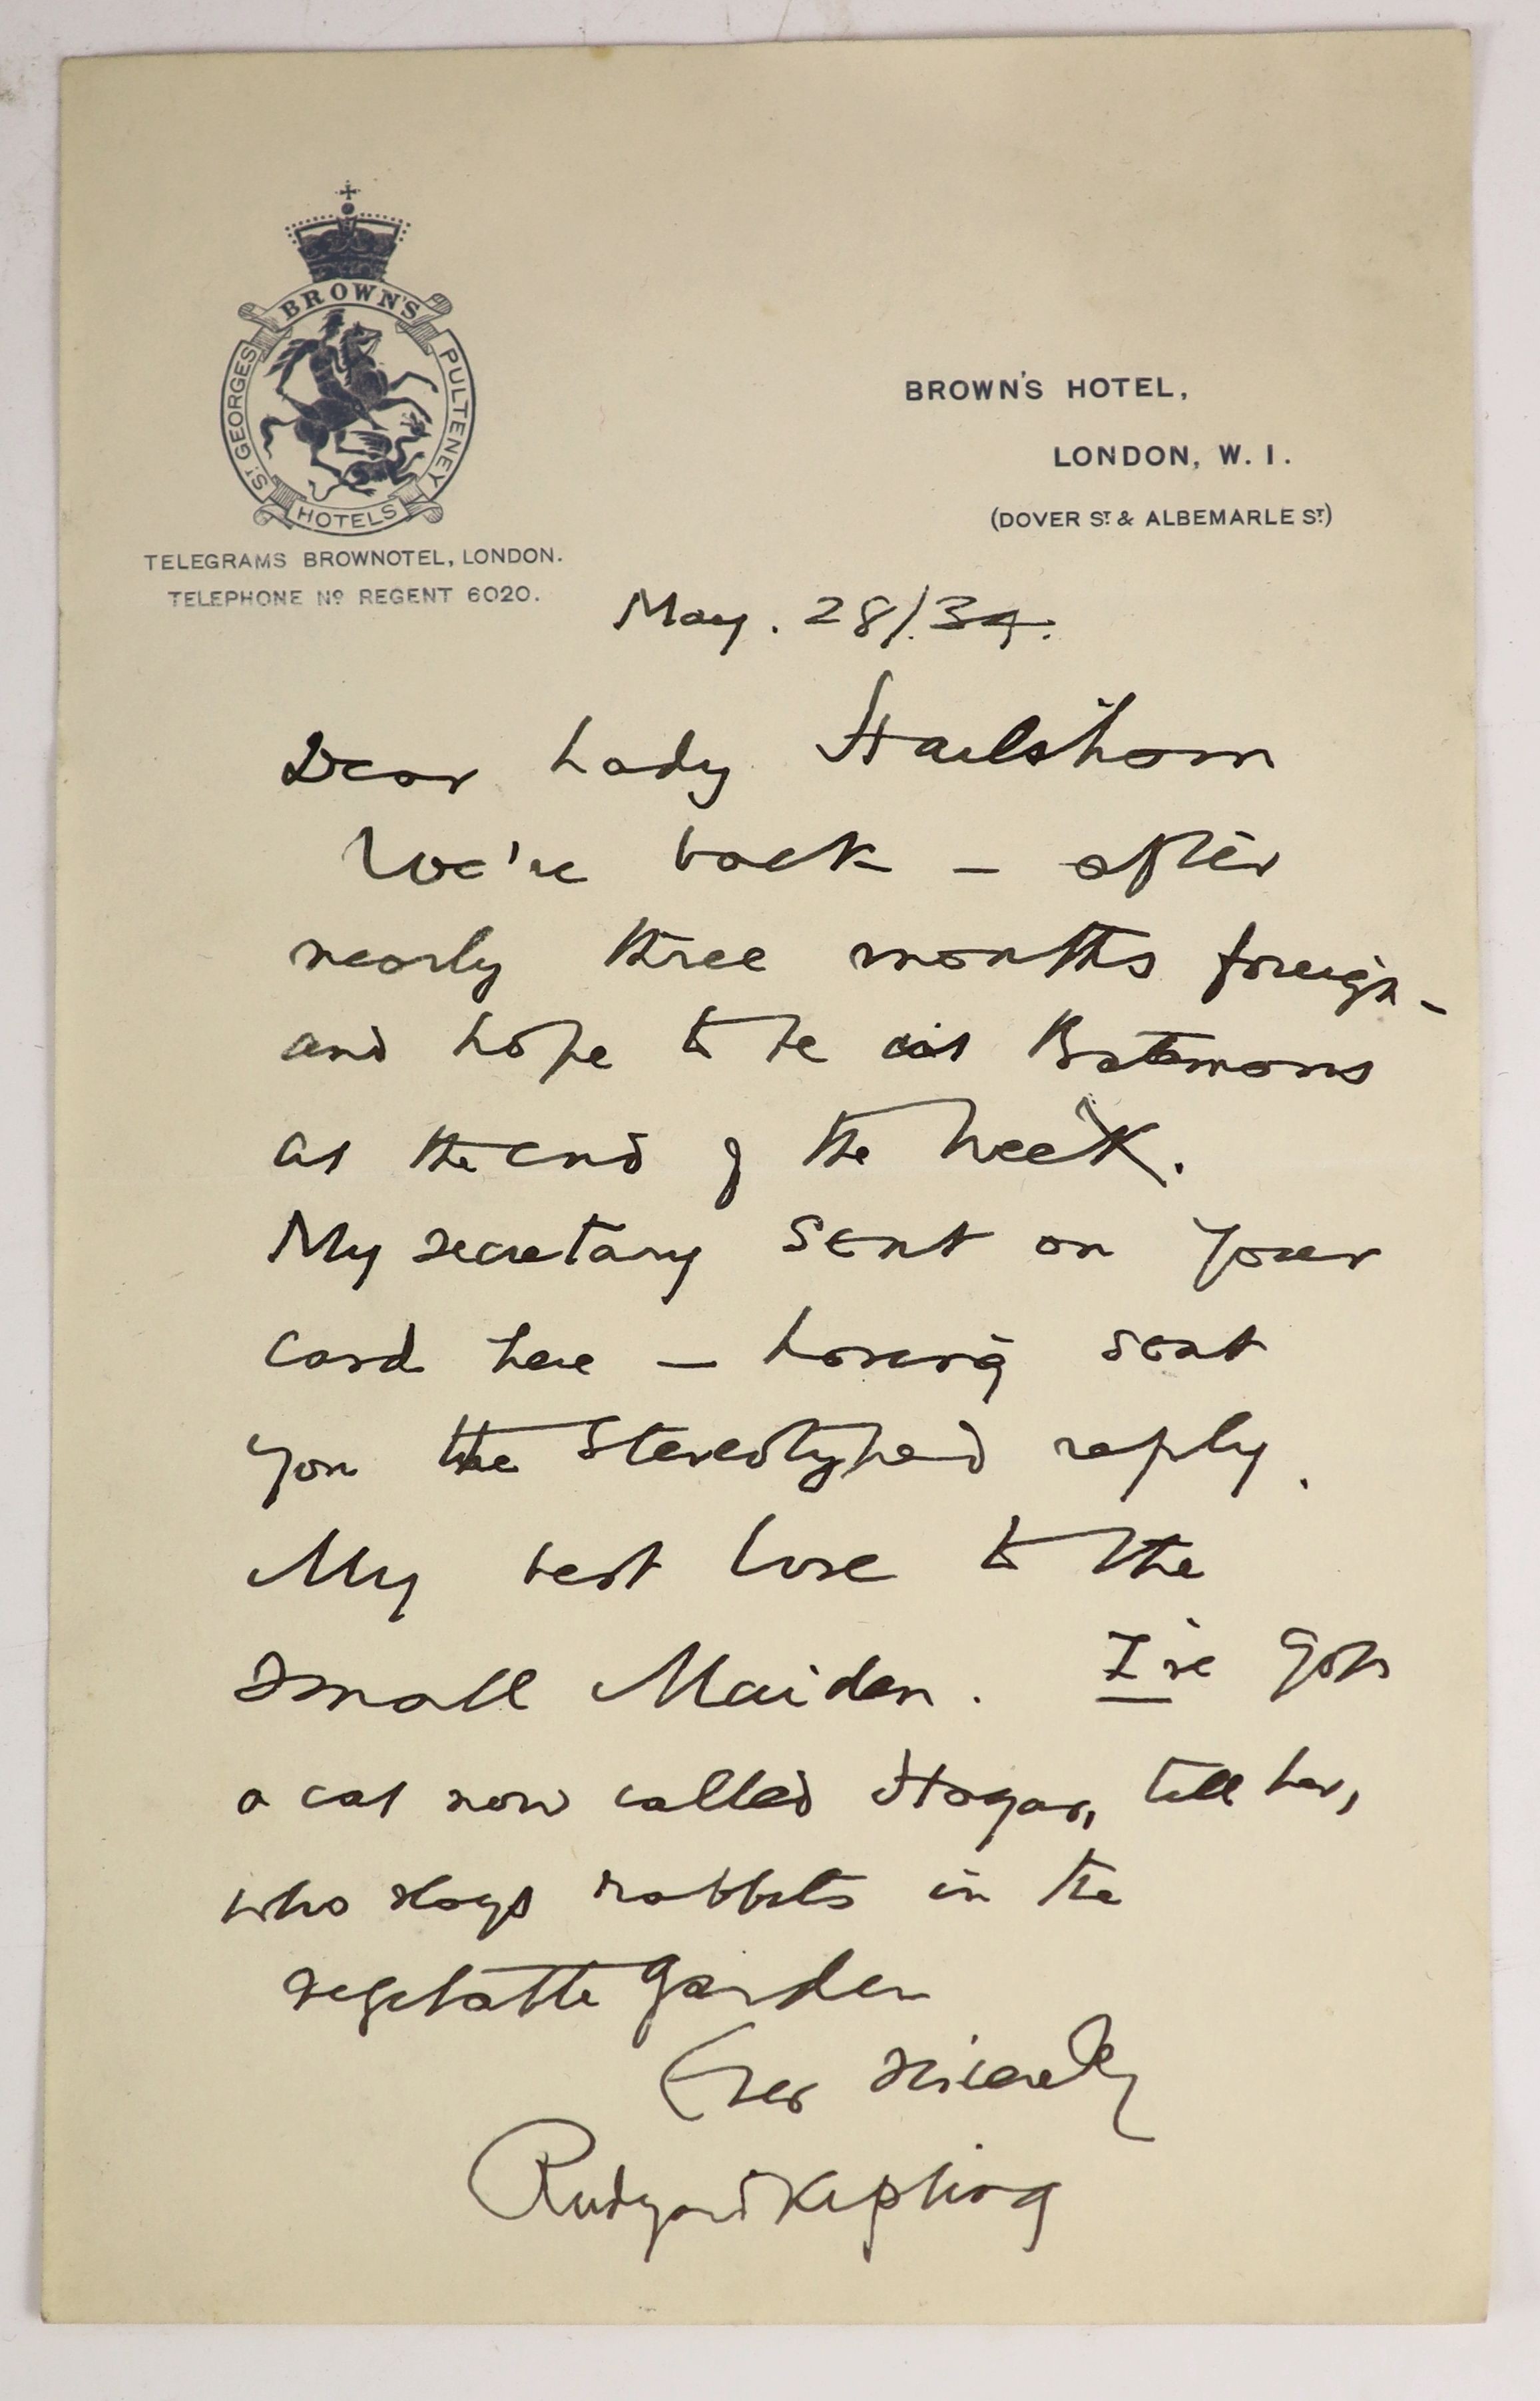 BROWN'S
ST GEORGES
PULTENEY
HOTELS
TELEGRAMS BROWNOTEL, LONDON.
TELEPHONE Nº REGENT 6020.
BROWN'S HOTEL,
LONDON, W. 1.
(DOVER ST & ALBEMARLE ST)
May. 28/.34.
Dear Lady Hailsham
We're back – after
nearly three months foreign –
and hope to be at Batemans
at the end of the week.
My secretary sent on your
card here – having sent
you the stereotyped reply.
My best love to the
small Maiden. I've got
a cat now called Hogan, tell her,
who slays rabbits in the
vegetable garden
Ever sincerely
Rudyard Kipling